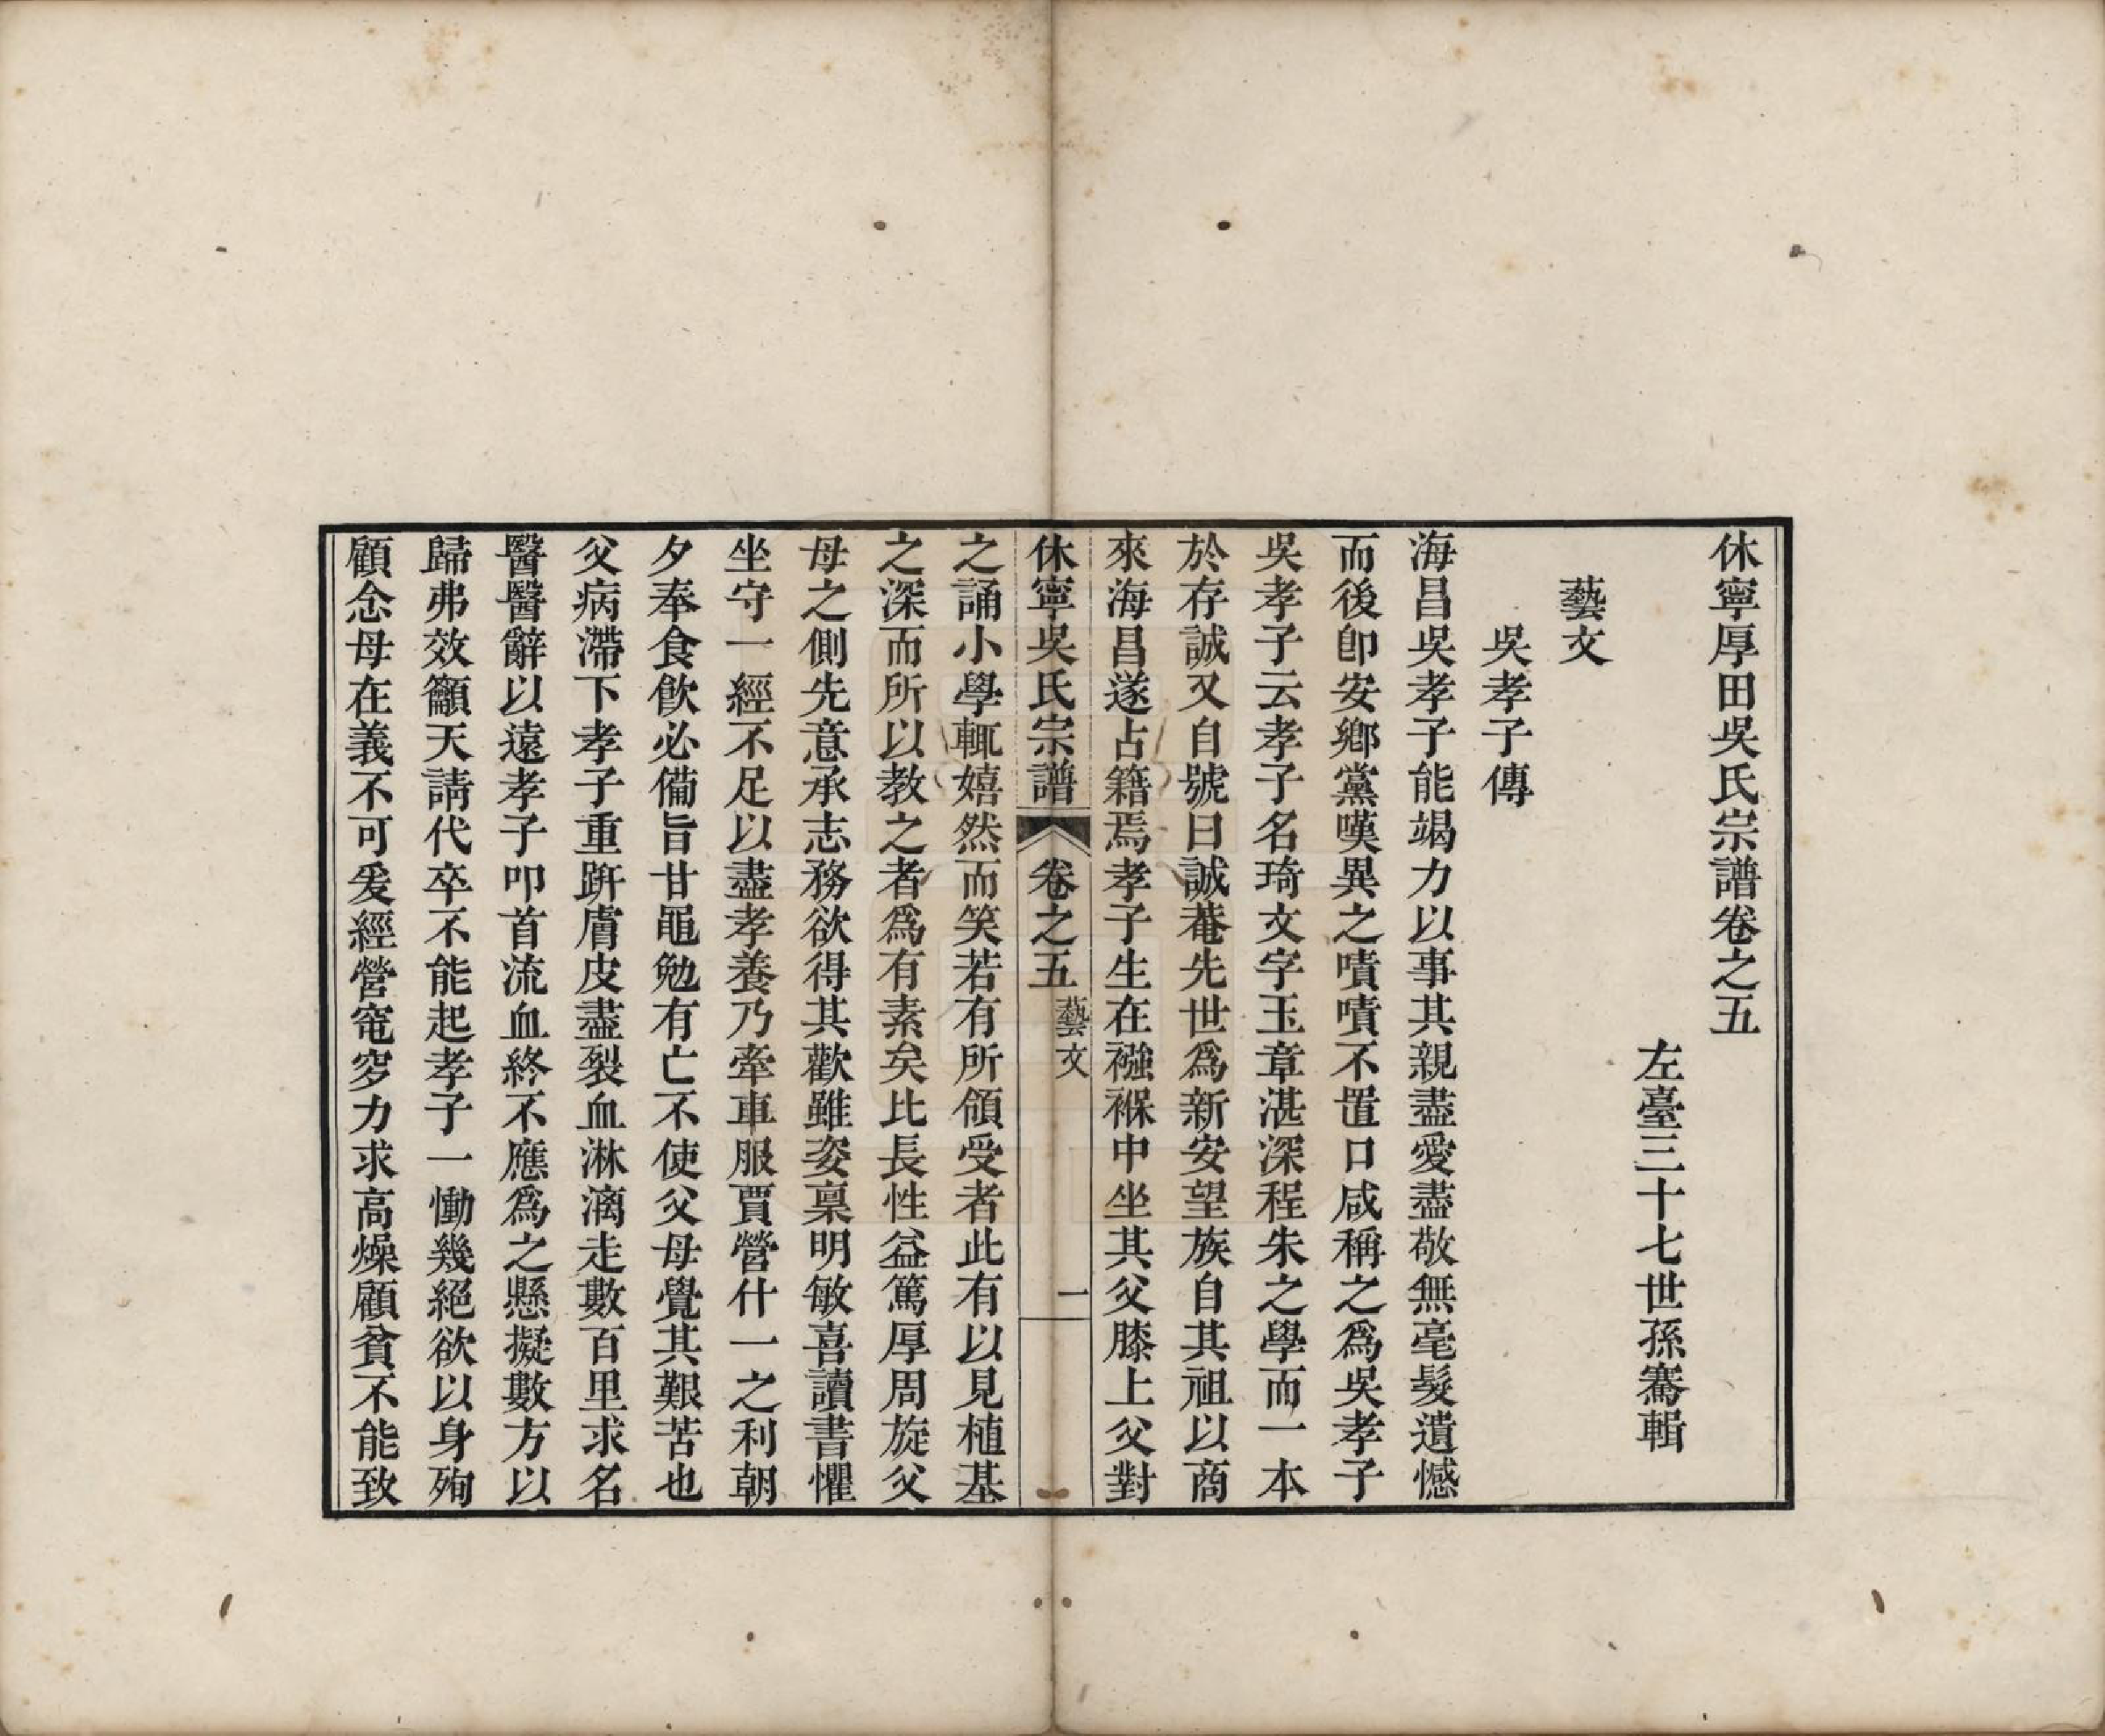 休寧厚田吳氏宗譜卷之五
左臺三十七世孫騫輯
藝文
吳孝子傳
海昌吳孝子能竭力以事其親盡愛盡敬無毫髮遺憾
而後卽安鄉黨嘆異之嘖嘖不置口咸稱之爲吳孝子
吳孝子云孝子名琦文字玉章湛深程朱之學而一本
於存誠又自號曰誠菴先世爲新安望族自其祖以商
來海昌遂占籍焉孝子生在襁褓中坐其父膝上父對
休寧吳氏宗譜 卷之五 藝文 一
之誦小學輒嬉然而笑若有所領受者此有以見植基
之深而所以教之者爲有素矣比長性益篤厚周旋父
母之側先意承志務欲得其歡雖姿稟明敏喜讀書懼
坐守一經不足以盡孝養乃牽車服賈營什一之利朝
夕奉食飲必備旨甘黽勉有亡不使父母覺其艱苦也
父病滯下孝子重趼膚皮盡裂血淋漓走數百里求名
醫醫辭以遠孝子叩首流血終不應爲之懸擬數方以
歸弗效籲天請代卒不能起孝子一慟幾絕欲以身殉
顧念母在義不可爰經營窀穸力求高燥顧貧不能致